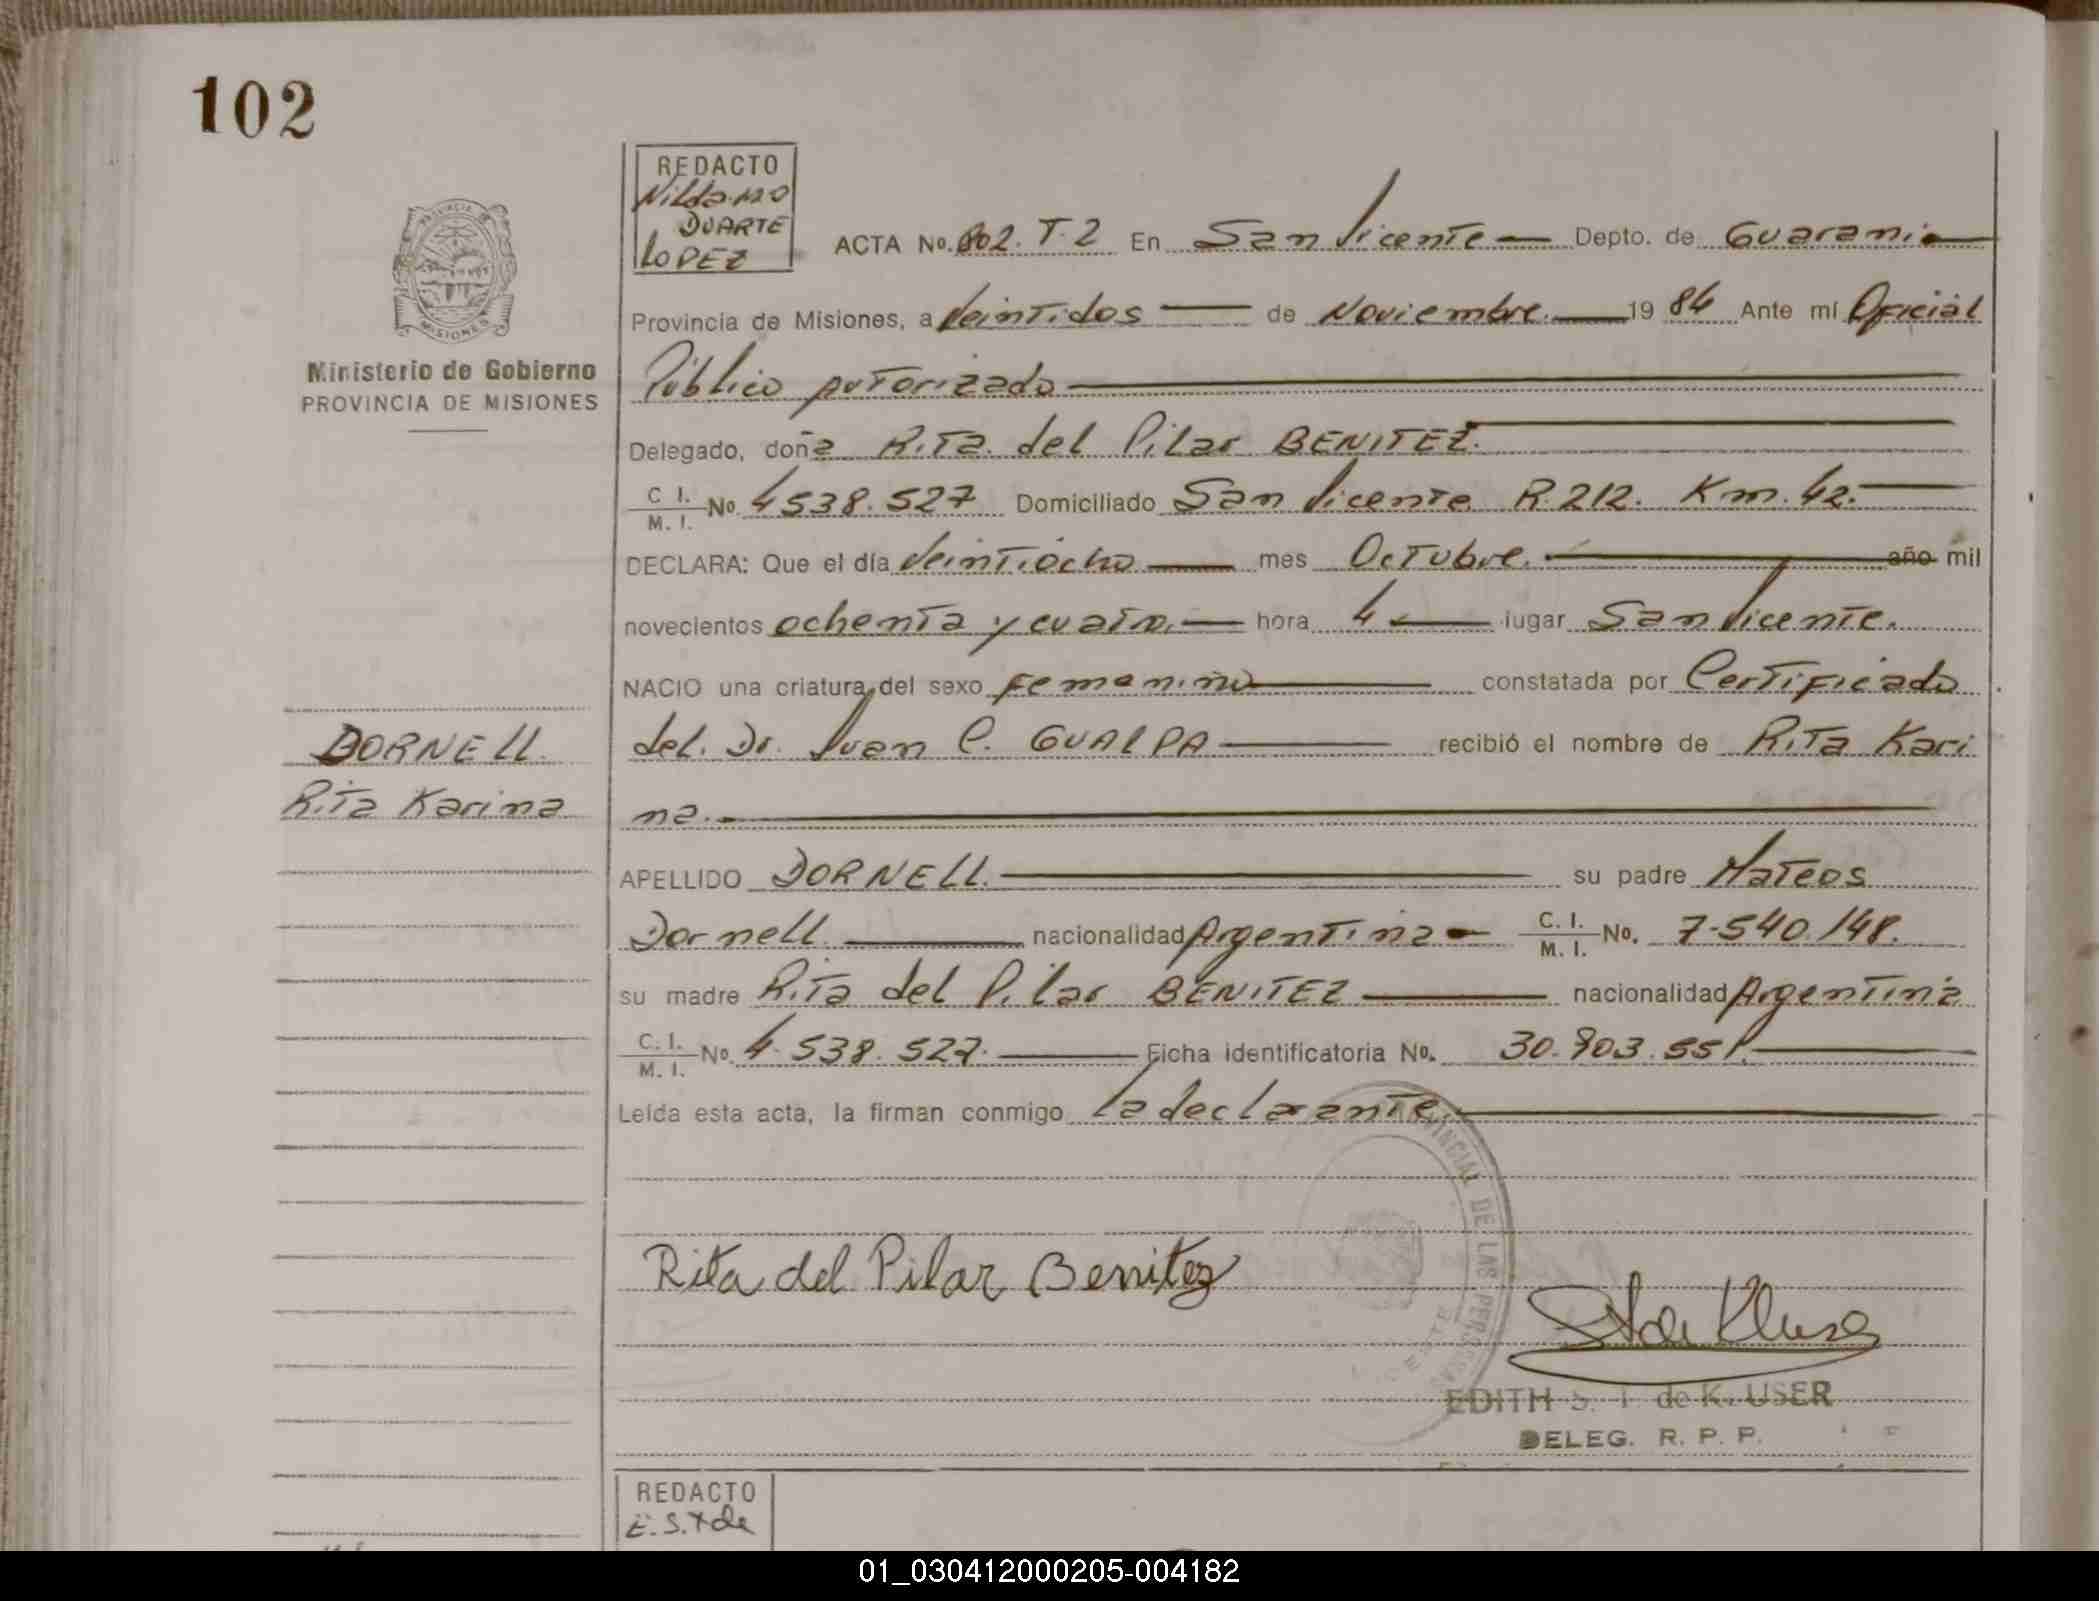 102
REDACTO
DUARTE
LOPEZ
ACTA No. 802. T. 2 En San Vicente Depto. de Guarani
PROVINCIA DE
MISIONES
Provincia de Misiones, a Veintidos de Noviembre. 19 84 Ante mí Oficial
Ministerio de Gobierno
PROVINCIA DE MISIONES
Público autorizado
Delegado, doña Rita del Pilar BENITEZ.
C. I.
M. I. No. 4538.527 Domiciliado San Vicente R. 212. Km. 42.
DECLARA: Que el día Veintiocho mes Octubre. año mil
novecientos ochenta y cuatro. hora 4 lugar San Vicente.
NACIO una criatura del sexo Femenino constatada por Certificado
DORNELL.
del. Dr. Juan C. GUALPA recibió el nombre de Rita Kari
Rita Karina
na.
APELLIDO DORNELL. su padre Mateos
Dornell. nacionalidad Argentina C. I.
M. I. No. 7.540.148.
su madre Rita del Pilar BENITEZ nacionalidad Argentina
C. I.
M. I. No. 4.538.527. Ficha identificatoria No. 30.903.551.
Leída esta acta, la firman conmigo La declarante.
PROVINCIAL DE LAS PERSONAS
Rita del Pilar Benitez
EDITH S. T de K. USER
DELEG. R. P. P.
REDACTO
E. S. T de
01_030412000205-004182